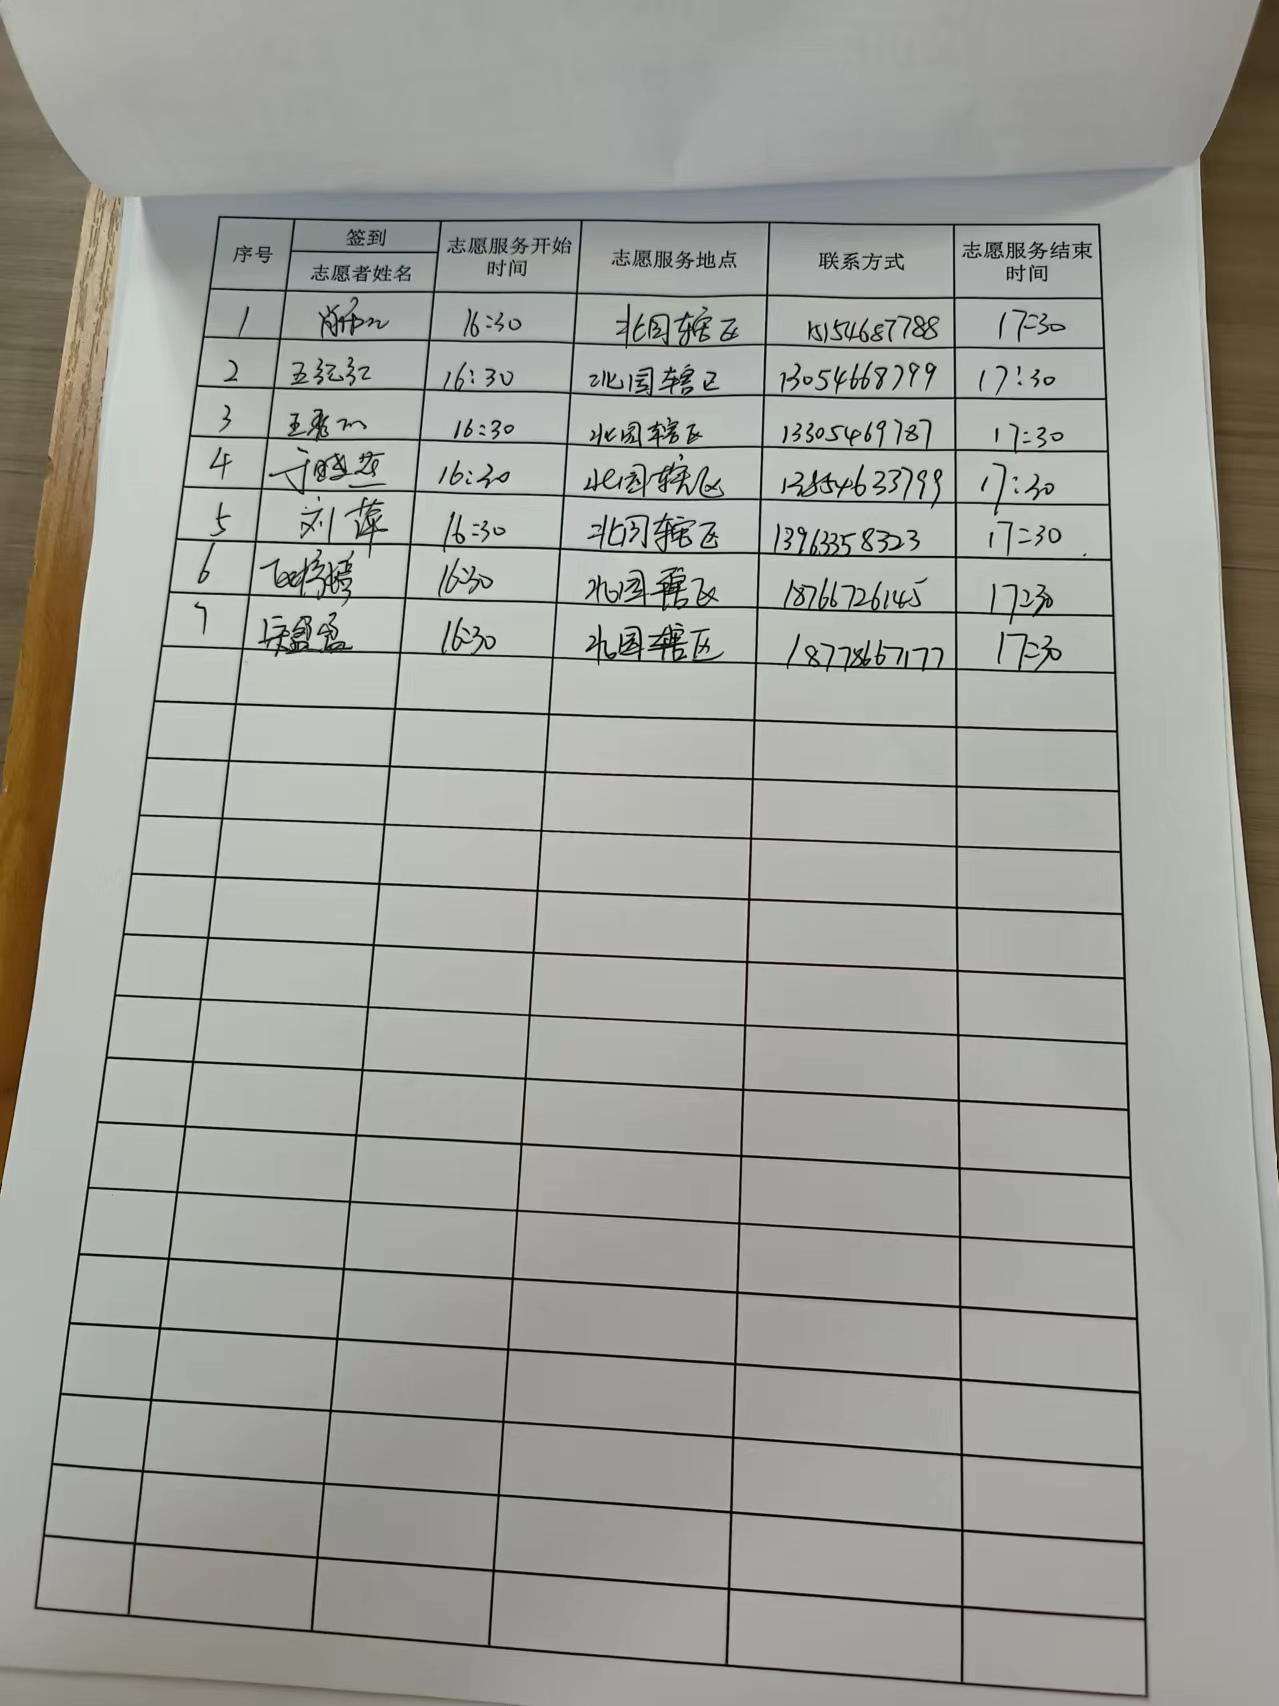 序号 签到 志愿服务开始时间 志愿服务地点 联系方式 志愿服务结束时间
志愿者姓名
1 16:30 北国辖区 15154687788 17:30
2 王红红 16:30 北国辖区 13054668799 17:30
3 王秀 16:30 北国辖区 13305469787 17:30
4 16:30 北国辖区 13854633799 17:30
5 刘萍 16:30 北国辖区 13963358323 17:30
6 16:30 北国辖区 18766726145 17:30
7 吴盈盈 16:30 北国辖区 18778667177 17:30